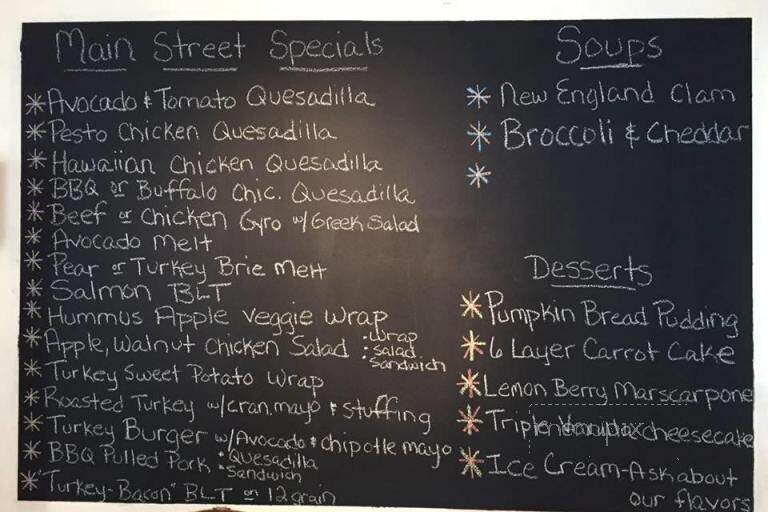 Main Street Specials
* Avocado & Tomato Quesadilla
* Pesto Chicken Quesadilla
* Hawaiian Chicken Quesadilla
* BBQ or Buffalo Chic. Quesadilla
* Beef or Chicken Gyro w/Greek Salad
* Avocado Melt
* Pear or Turkey Brie Melt
* Salmon BLT
* Hummus Apple Veggie Wrap
* Apple, Walnut Chicken Salad : Wrap
: Salad
: Sandwich
* Turkey Sweet Potato Wrap
* Roasted Turkey w/cran.mayo & Stuffing
* Turkey Burger w/Avocado & chipotle mayo
* BBQ Pulled Pork : Quesadilla
· Sandwich
* "Turkey-Bacon" BLT on 12 grain
Soups
* New England Clam
* Broccoli & Cheddar
*
Desserts
* Pumpkin Bread Pudding
* 6 Layer Carrot Cake
* Lemon Berry Marscarpone
* Triple cheesecake
* Ice Cream-Ask about
our flavors